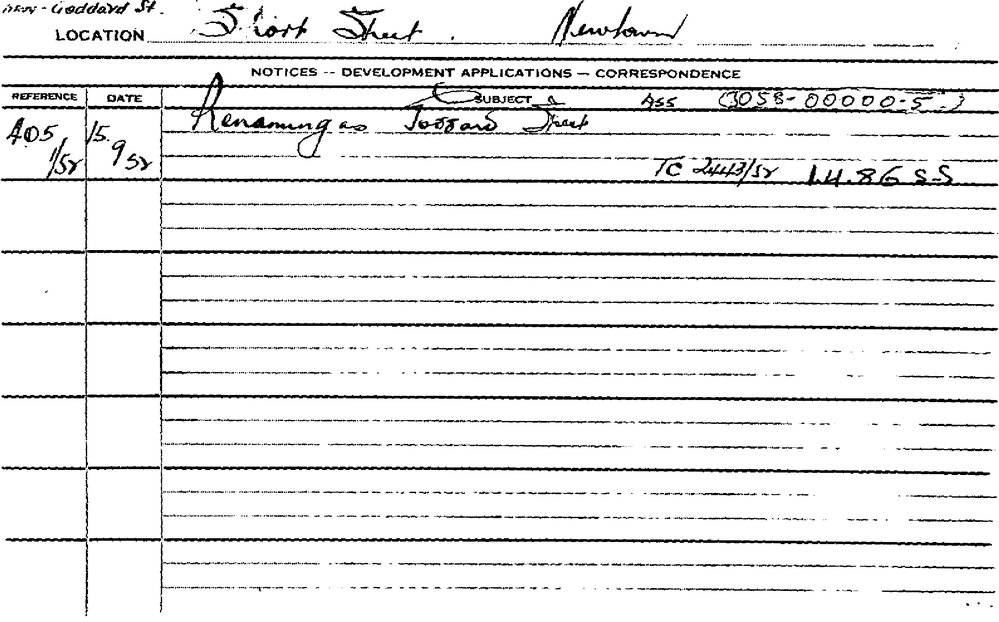 now - Goddard St.
LOCATION Short Street. Newtown
NOTICES -- DEVELOPMENT APPLICATIONS — CORRESPONDENCE
REFERENCE DATE SUBJECT ASS (3058-00000-5)
405 15. Renaming as Goddard Street
1/52 9 52
TC 2443/52 1.4.86 S.S